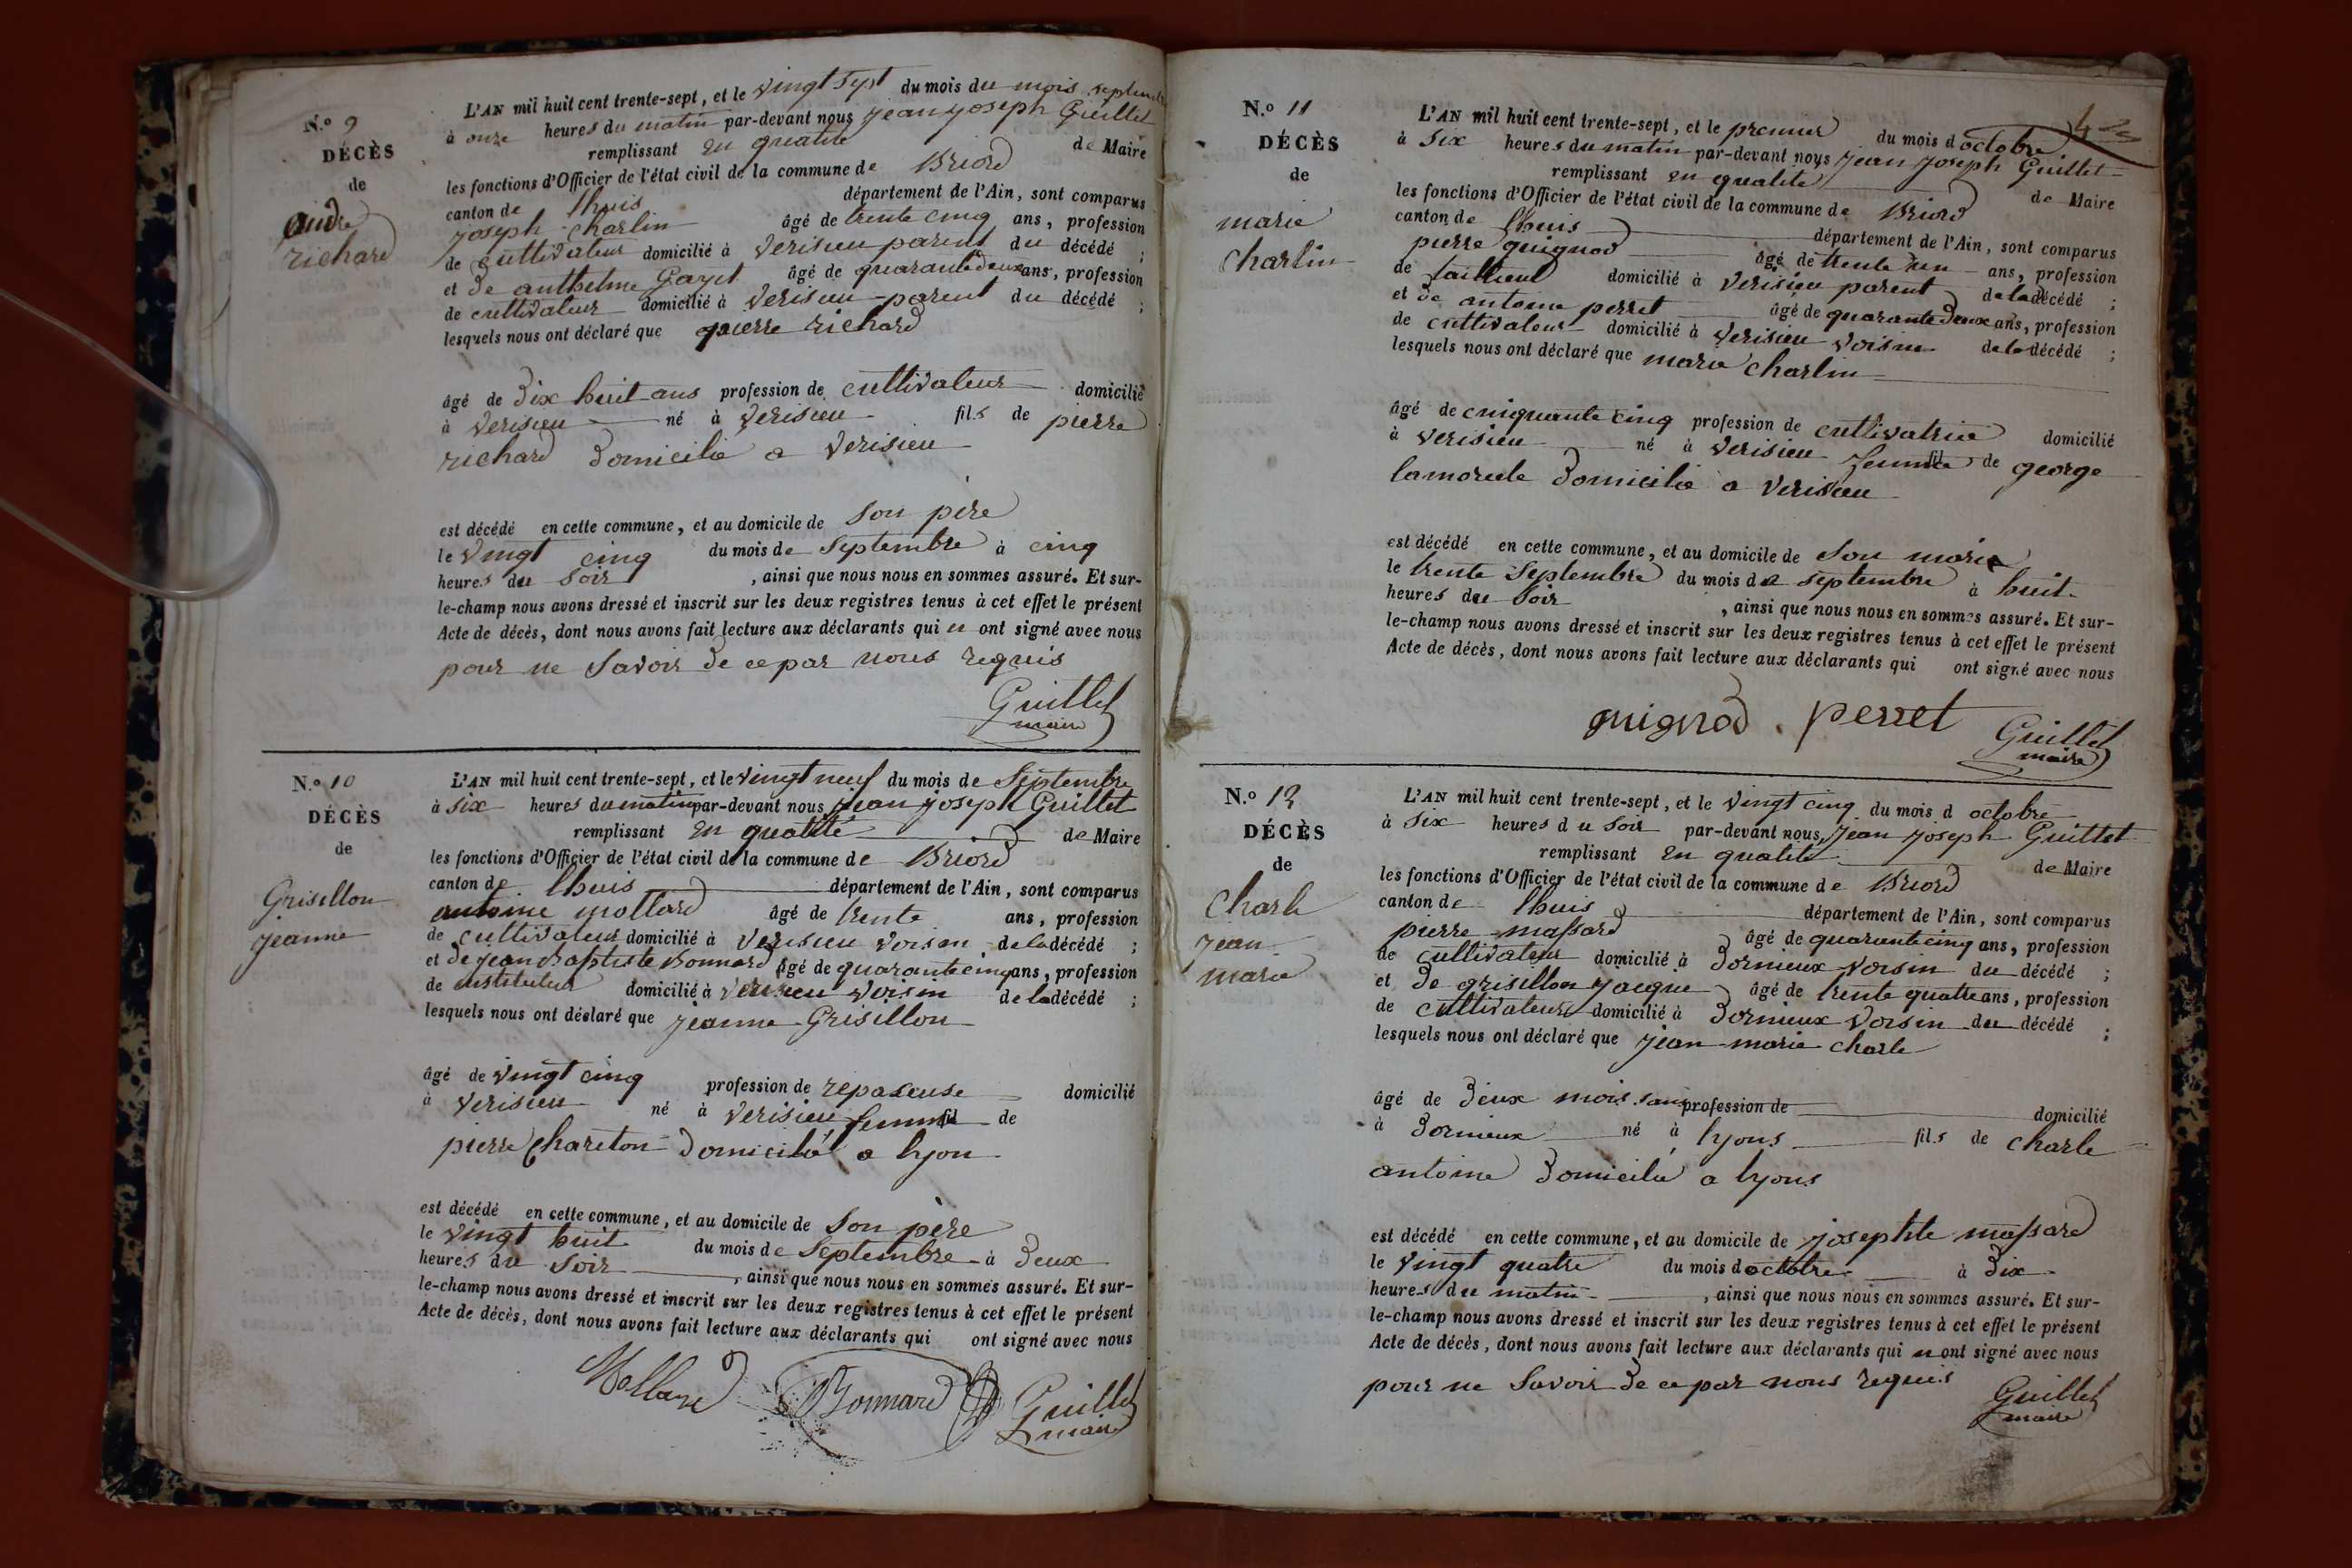 N.o 9
DÉCÈS
de
richard
L'AN mil huit cent trente-sept, et le vingt sept du mois du mois septembre
à onze heures du matin par-devant nous jean joseph Guillet
remplissant en qualité de Maire
les fonctions d'Officier de l'état civil de la commune de Briord
canton de lhuis département de l'Ain, sont comparus
joseph charlin âgé de trente cinq ans, profession
de cultivateur domicilié à verisieu parent du décédé ;
et de anthelme Gayet âgé de quarante deux ans, profession
de cultivateur domicilié à verisieu parent du décédé ;
lesquels nous ont déclaré que pierre richard
âgé de dix huit ans profession de cultivateur domicilié
à verisieu né à verisieu fils de pierre
richard domicilié a verisieu
est décédé en cette commune, et au domicile de son père
le vingt cinq du mois de septembre à cinq
heures du soir, ainsi que nous nous en sommes assuré. Et sur-
le-champ nous avons dressé et inscrit sur les deux registres tenus à cet effet le présent
Acte de décès, dont nous avons fait lecture aux déclarants qui n ont signé avec nous
pour ne savoir de ce par nous requis
Guillet
maire
N.o 10
DÉCÈS
de
Grisillon
jeanne
L'AN mil huit cent trente-sept, et le vingt neuf du mois de Septembre
à six heures du matin par-devant nous jean joseph Guillet
remplissant en qualité de Maire
les fonctions d'Officier de l'état civil de la commune de Briord
canton de lhuis département de l'Ain, sont comparus
antoine mollard âgé de trente ans, profession
de cultivateur domicilié à verisieu voisin de la décédé ;
et de jean Baptiste Bonnard âgé de quarante cinq ans, profession
de instituteur domicilié à verisieu voisin de la décédé ;
lesquels nous ont déclaré que jeanne Grisillon
âgé de vingt cinq profession de repaseuse domicilié
à verisieu né à verisieu femme fil de
pierre Chareton domicilié a lyon
est décédé en cette commune, et au domicile de son père
le vingt huit du mois de Septembre à deux
heures du soir, ainsi que nous nous en sommes assuré. Et sur-
le-champ nous avons dressé et inscrit sur les deux registres tenus à cet effet le présent
Acte de décès, dont nous avons fait lecture aux déclarants qui ont signé avec nous
Mollard Bonnard Guillet
maire
N.o 11
DÉCÈS
de
marie
charlin
L'AN mil huit cent trente-sept, et le premier du mois d octobre
à six heures du matin par-devant nous jean joseph Guillet
remplissant en qualité de Maire
les fonctions d'Officier de l'état civil de la commune de Briord
canton de lhuis département de l'Ain, sont comparus
pierre quignod âgé de trente un ans, profession
de tailleur domicilié à verisieu parent de la décédé ;
et de antoine perret âgé de quarante deux ans, profession
de cultivateur domicilié à verisieu voisin de la décédé ;
lesquels nous ont déclaré que marie charlin
âgé de cinquante cinq profession de cultivatrice domicilié
à verisieu né à verisieu femme fil de george
domicilié a verisieu
est décédé en cette commune, et au domicile de son marie
le trente septembre du mois de septembre à huit
heures du soir, ainsi que nous nous en sommes assuré. Et sur-
le-champ nous avons dressé et inscrit sur les deux registres tenus à cet effet le présent
Acte de décès, dont nous avons fait lecture aux déclarants qui ont signé avec nous
quignod . perret Guillet
maire
N.o 12
DÉCÈS
de
Charle
jean
marie
L'AN mil huit cent trente-sept, et le vingt cinq du mois d octobre
à six heures du soir par-devant nous jean joseph Guillet
remplissant en qualité de Maire
les fonctions d'Officier de l'état civil de la commune de Briord
canton de lhuis département de l'Ain, sont comparus
pierre massard âgé de quarante cinq ans, profession
de cultivateur domicilié à dornieux voisin du décédé ;
et de grisillon jacque âgé de trente quatre ans, profession
de cultivateur domicilié à dornieux voisin du décédé ;
lesquels nous ont déclaré que jean marie charle
âgé de deux mois sans profession de domicilié
à dornieux né à lyons fils de charle
antoine domicilié a lyons
est décédé en cette commune, et au domicile de josephte massard
le vingt quatre du mois d octobre à dix
heures du matin, ainsi que nous nous en sommes assuré. Et sur-
le-champ nous avons dressé et inscrit sur les deux registres tenus à cet effet le présent
Acte de décès, dont nous avons fait lecture aux déclarants qui n ont signé avec nous
pour ne savoir de ce par nous requis
Guillet
maire